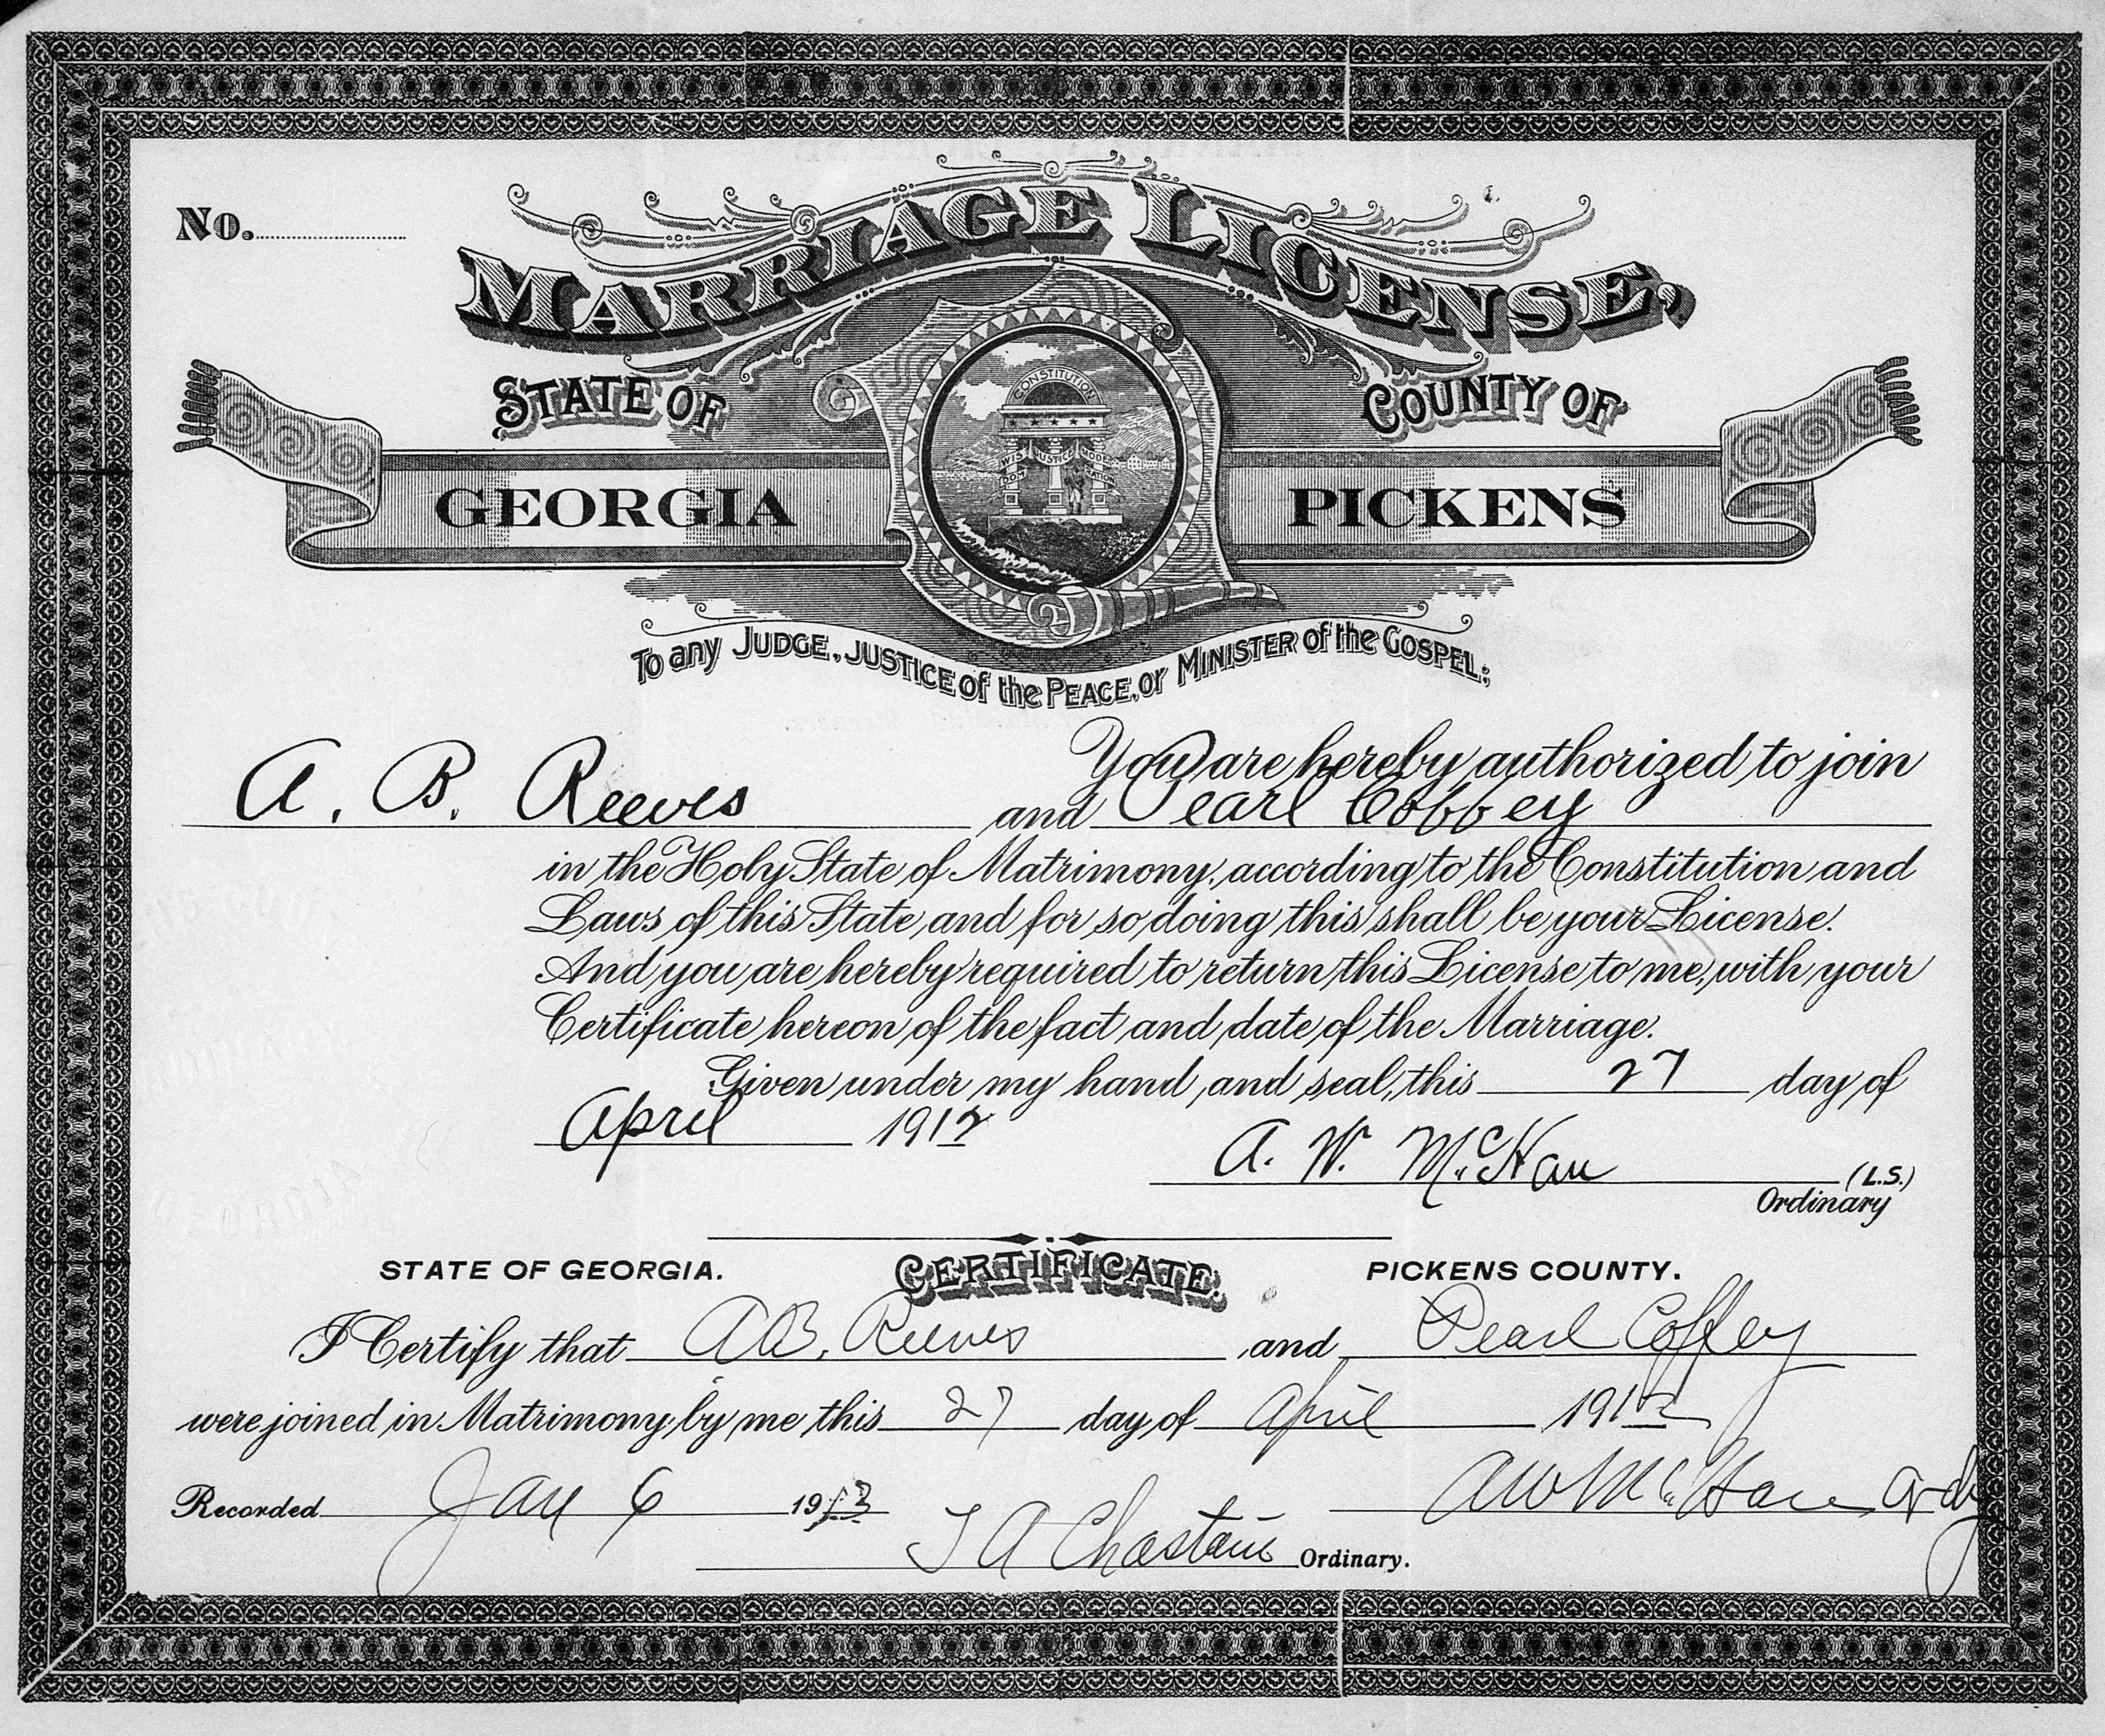 No.
MARRIAGE LICENSE,
STATE OF COUNTY OF
CONSTITUTION
WISDOM JUSTICE MODERATION
GEORGIA PICKENS
To any JUDGE, JUSTICE of the PEACE, or MINISTER of the GOSPEL;
You are hereby authorized to join
A. B. Reeves and Pearl Coffey
in the Holy State of Matrimony, according to the Constitution and
Laws of this State, and for so doing this shall be your License.
And you are hereby required to return this License to me, with your
Certificate hereon of the fact and date of the Marriage.
Given under my hand and seal, this 27 day of
April 1912
A. W. McHan (L.S.)
Ordinary
STATE OF GEORGIA. CERTIFICATE. PICKENS COUNTY.
I Certify that A B. Reeves and Pearl Coffey
were joined in Matrimony by me this 27 day of April 1912
A W McHan Ordy
Recorded Jan 6 1913
Chastain Ordinary.